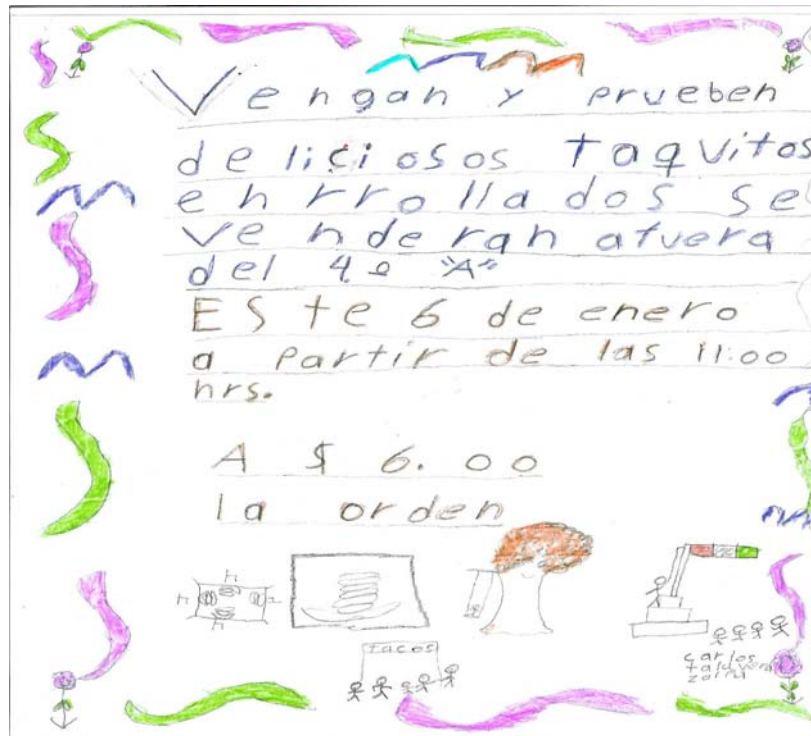 Vengan y prueben
deliciosos taquitos
enrrollados se
venderan afuera
del 4º "A"
Este 6 de enero
a partir de las 11:00
hrs.
A $ 6.00
la orden
tacos
carlos